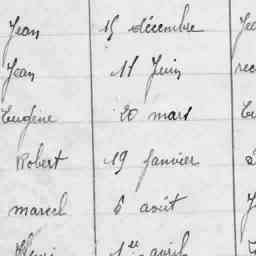 Jean 15 décembre Jea
Jean 11 Juin rec
Eugène 20 mars Eu
Robert 19 janvier
marcel 6 août J
Henri 1er avril